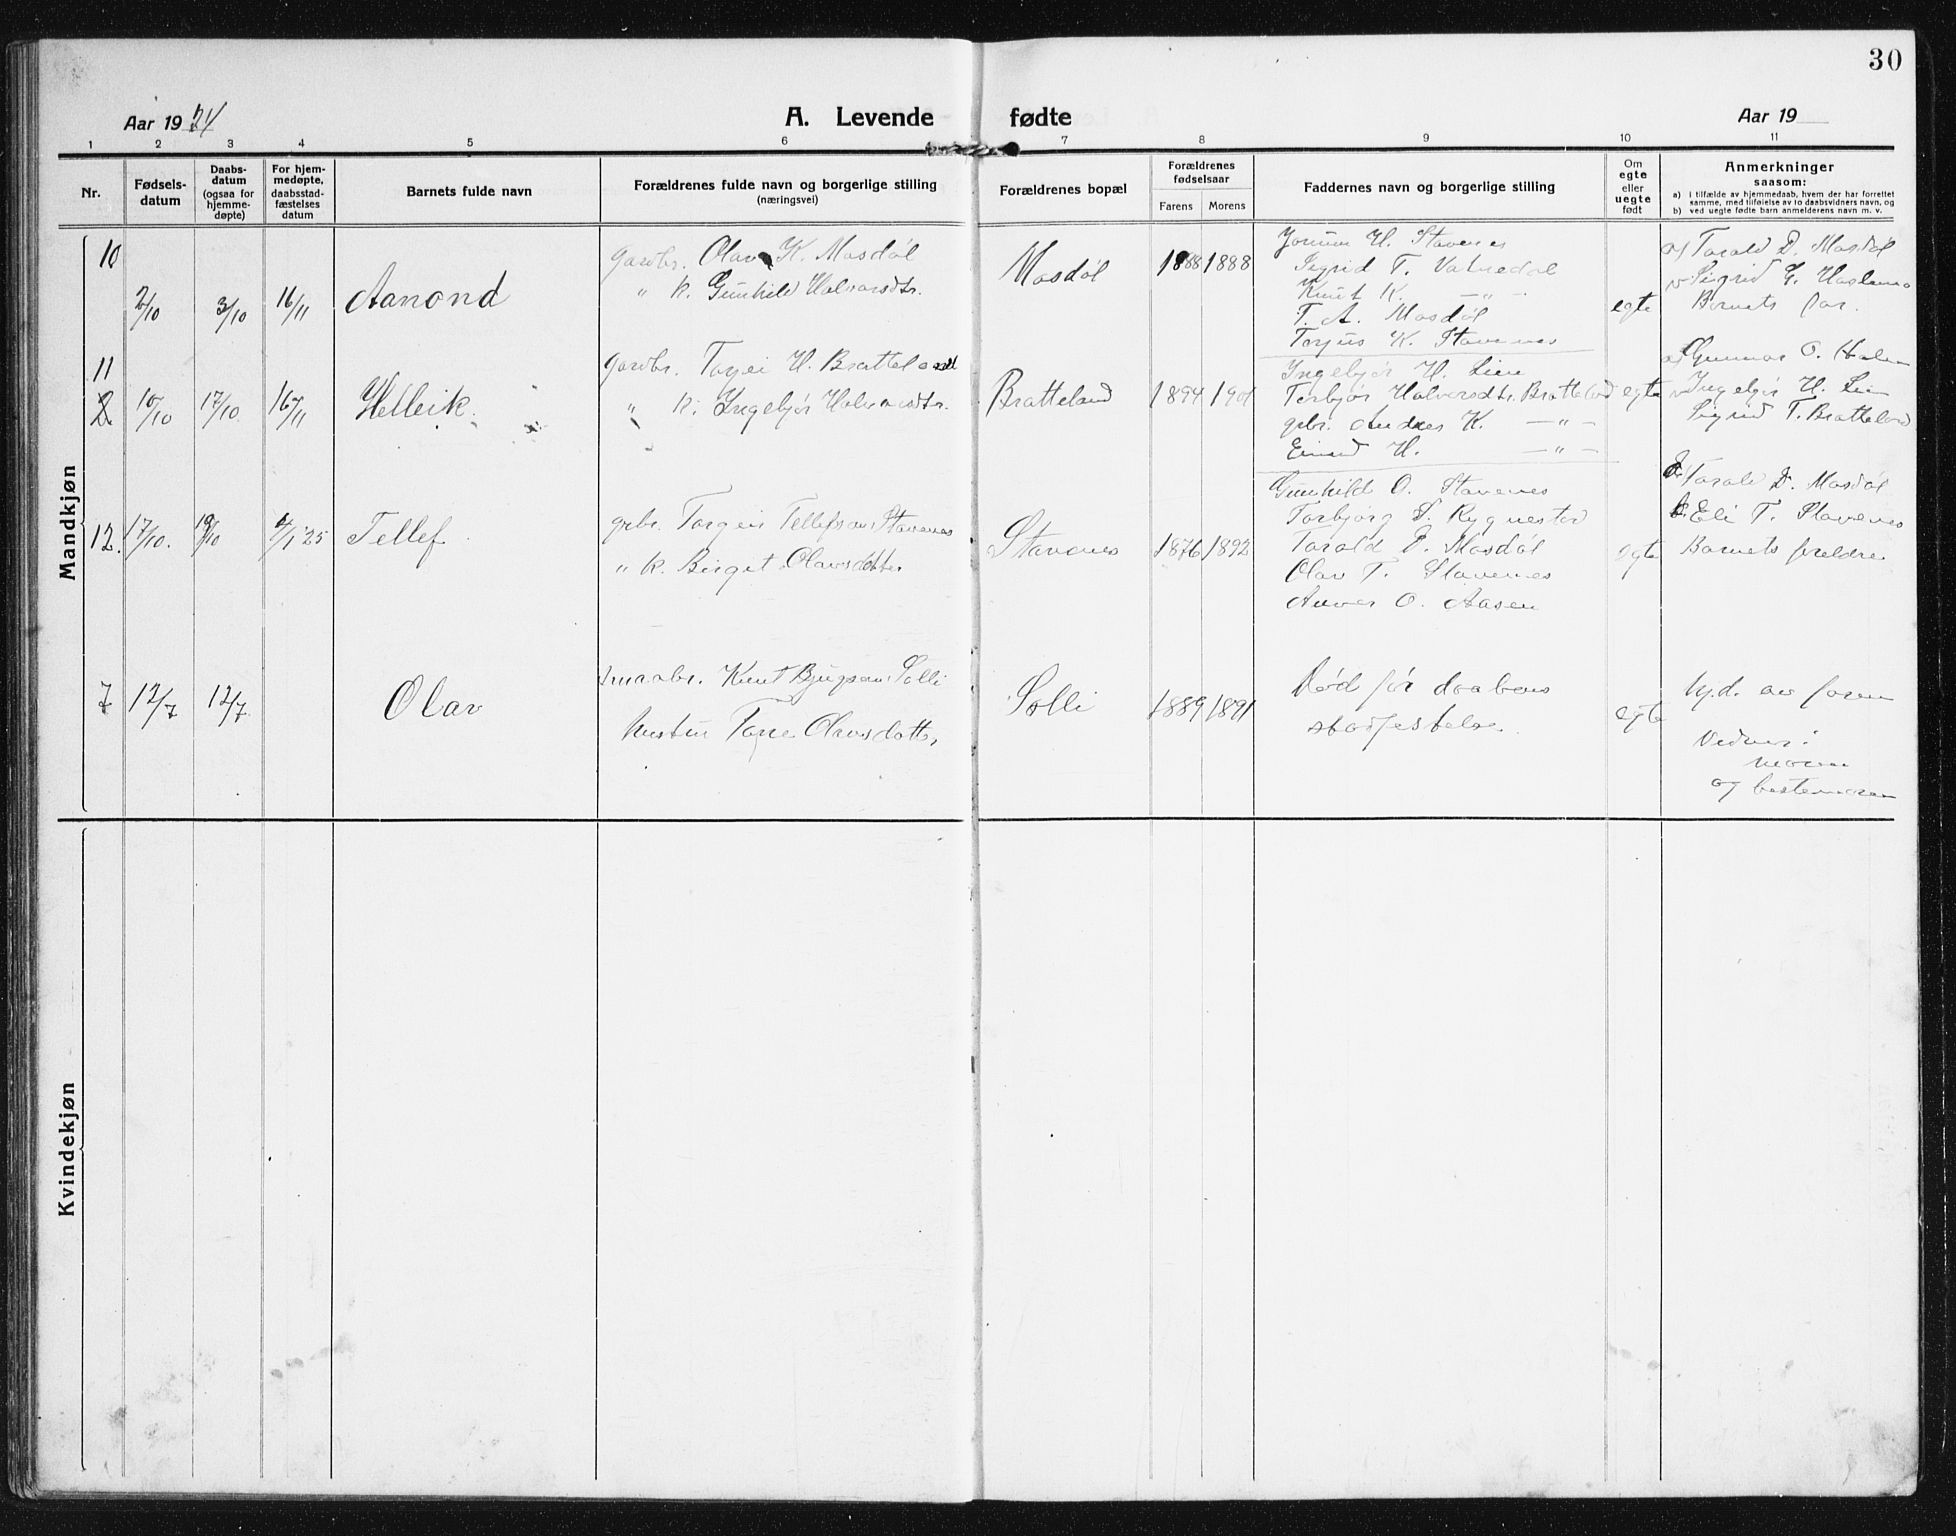 30
Aar 1924
A. Levende fødte
Aar 19
1 2 3 4 5 6 7 8 9 10 11
Nr.
Fødsels-
datum
Daabs-
datum
(ogsaa for
hjemme-
døpte)
For hjem-
medøpte,
daabsstad-
fæstelses
datum
Barnets fulde navn
Forældrenes fulde navn og borgerlige stilling
(næringsvei)
Forældrenes bopæl
Forældrenes
fødselsaar
Farens
Morens
Faddernes navn og borgerlige stilling
Om
egte
eller
uegte
født
Anmerkninger
saasom:
a) i tilfælde av hjemmedaab, hvem der har forrettet
samme, med tilføielse av to daabsvidners navn, og
b) ved uegte fødte barn anmelderens navn m. v.
Mandkjøn
10
2/10
3/10
16/11
Aanond
Gardbr. Olav K. Mosdøl
" k. Gunhild Halvorsdtr.
Mosdøl
1888
1888
Jorunn H. Stavenes
Sigrid T. Vatnedal
Knut K. — " —
T. A. Mosdøl
Torjus K. Stavenes
egte
af Tarald D. Mosdøl
v Sigrid G.
Barnets far.
11
2
10/10
17/10
16/11
Helleik.
Gardbr. Torjei H. Bratteland
" k. Ingebjør Halvorsdtr.
Bratteland
1894
1901
Ingebjør H. Lien
Torbjør Halvorsdtr. Bratteland
gbr. Andres K. — " —
Eivind H. — " —
egte
af Gunnar O.
v Ingebjør H. Lien
Sigrid T. Bratteland
12.
17/10.
19/10
4/1 25
Tellef
gbr. Torgeir Tellefson Stavenes
" k. Birgit Olavsdotter
Stavenes
1876
1892
Gunhild O. Stavenes
Torbjørg T. Rygnestad
Tarald D. Mosdøl
Olav T. Stavenes
O. Aasen
egte
Tarald D. Mosdøl
Eli T. Stavenes
Barnets foreldre
7
12/7
12/7
Olav
Smaabr. Knut Bjugson Solli
hustru Tone Olavsdotter
Solli
1889
1891
Død før daabens
stadfestelse.
egte
Hj.d. av faren
Vidner:
moren
og bestemoren
Kvindekjøn